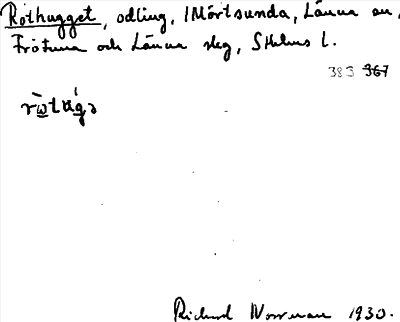 Rothugget, odling, Mörtsunda, Länna sn,
Frötuna och Länna skg, Sthlms l.
383 367
Richard Norrman 1930.